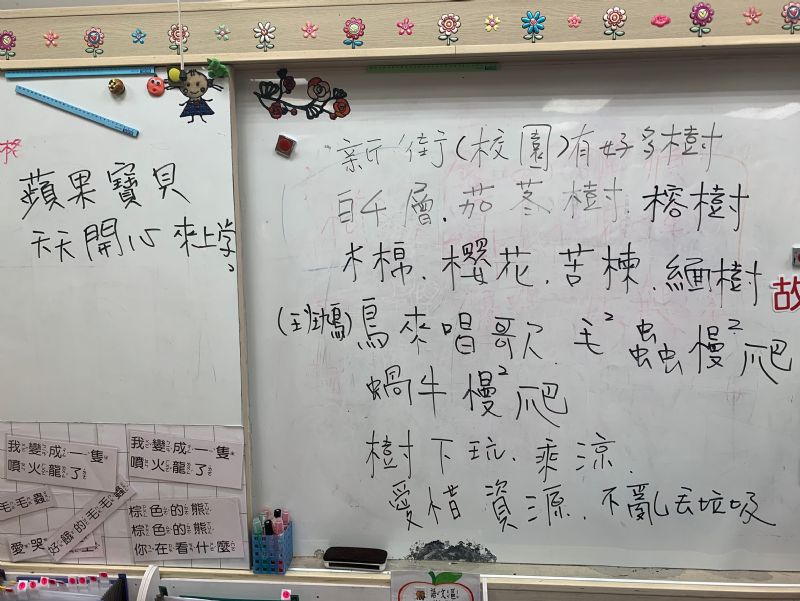 蘋果寶貝
天天開心來上学
新街(校園)有好多樹
白千層.茄苳樹.榕樹
木棉.櫻花.苦楝.緬樹
鳥來唱歌 毛²蟲慢²爬
蝸牛慢²爬
樹下玩.乘涼.
愛惜資源.不亂丟垃圾
故
我變成一隻
噴火龍了
我變成一隻
噴火龍了
毛毛蟲
好餓的毛毛蟲
愛哭
棕色的熊
棕色的熊
你在看什麼
語文區